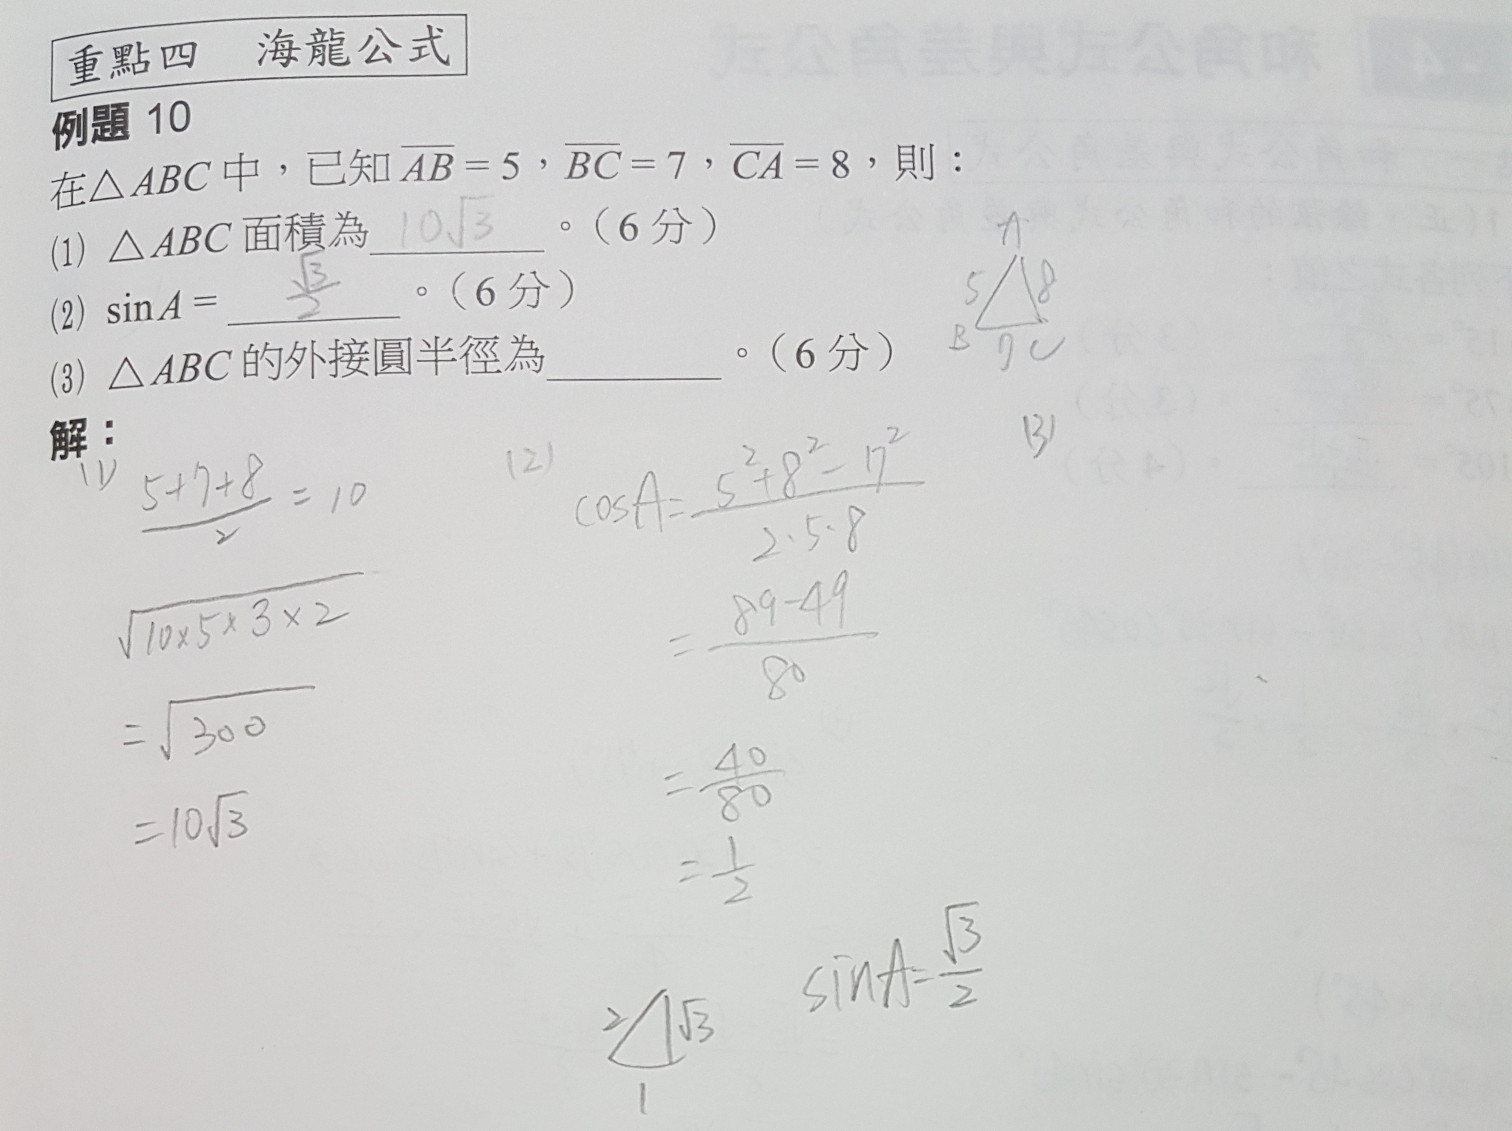 重點四 海龍公式
例題 10
在△ABC 中，已知 AB = 5，BC = 7，CA = 8，則：
(1) △ABC 面積為 10√3 。（6 分）
(2) sin A = √3/2 。（6 分）
(3) △ABC 的外接圓半徑為______。（6 分）
A
5 8
B 7 C
解：
(1)
(5+7+8)/2 = 10
√10×5×3×2
= √300
= 10√3
(2)
cosA = (5²+8²-7²)/(2·5·8)
= (89-49)/80
= 40/80
= 1/2
sinA = √3/2
2 √3
1
(3)